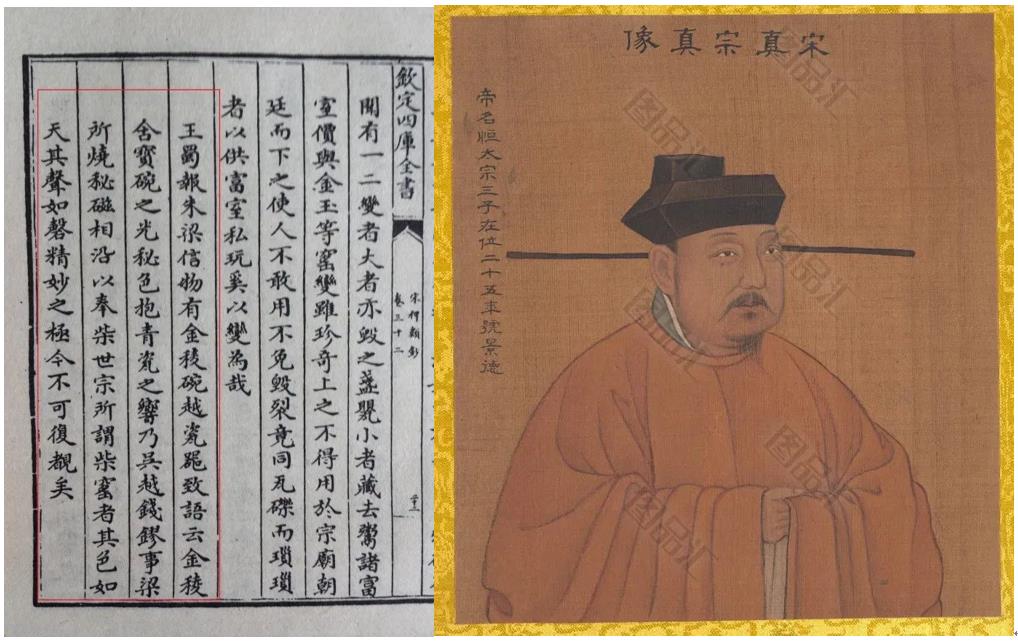 欽定四庫全書
宋稗類鈔
卷三十二
聞有一二變者大者亦毀之盞甖小者藏去鬻諸富
室價與金玉等窰變雖珍奇上之不得用於宗廟朝
廷而下之使人不敢用不免毀裂竟同瓦礫而瑣瑣
者以供富室私玩奚以變為哉
王蜀報朱梁信物有金稜碗越瓷器致語云金稜
舍寶碗之光秘色抱青瓷之響乃吳越錢鏐事梁
所燒秘磁相沿以奉柴世宗所謂柴窰者其色如
天其聲如磬精妙之極今不可復覩矣
宋真宗真像
帝名恒太宗三子在位二十五年號景德
图品汇
图品汇
图品汇
图品汇
图品汇
图品汇